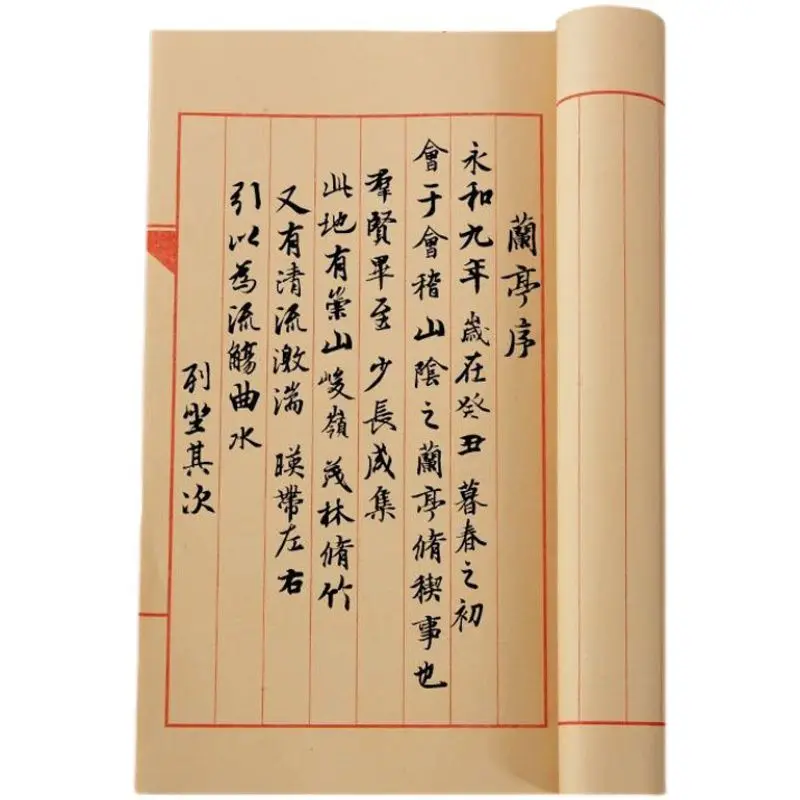 蘭亭序
永和九年歲在癸丑暮春之初
會于會稽山陰之蘭亭脩稧事也
羣賢畢至少長咸集
此地有崇山峻嶺茂林脩竹
又有清流激湍暎帶左右
引以為流觴曲水
列坐其次